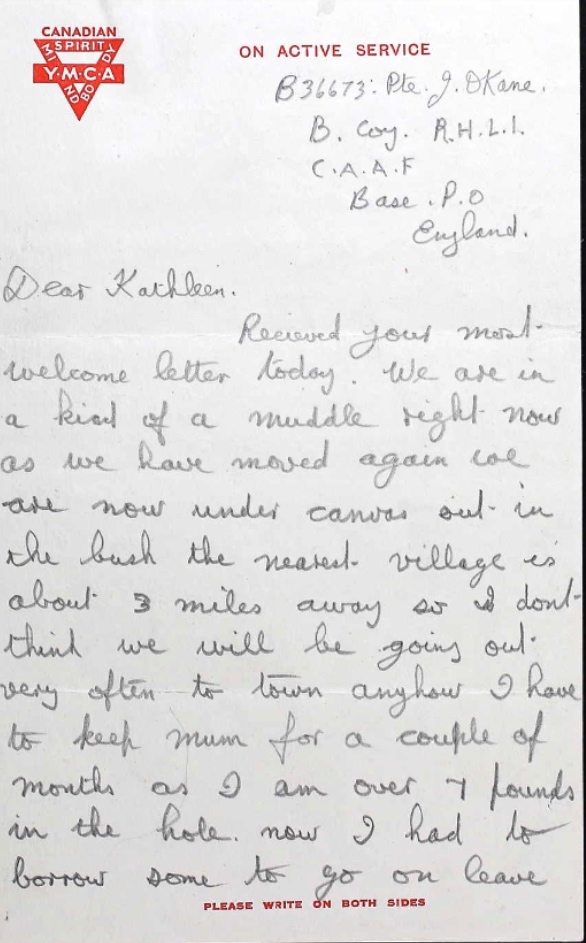 CANADIAN
SPIRIT
MIND BODY
Y·M·C·A
ON ACTIVE SERVICE
B36673: Pte. J. OKane.
B. Coy. R.H.L.I.
C.A.A.F
Base. P.O
England.
Dear Kathleen.
Recieved your most
welcome letter today. We are in
a kind of a muddle right now
as we have moved again we
are now under canvas out in
the bush the nearest village is
about 3 miles away so I dont
think we will be going out
very often to town anyhow I have
to keep mum for a couple of
months as I am over 7 pounds
in the hole. now I had to
borrow some to go on leave
PLEASE WRITE ON BOTH SIDES